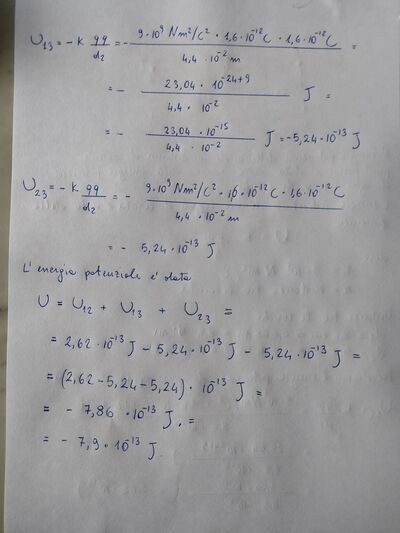 U₁₃ = - K qq/d₂ = - 9·10⁹ Nm²/C² · 1,6·10⁻¹²C · 1,6·10⁻¹²C / 4,4·10⁻² m =
= - 23,04·10⁻²⁴⁺⁹ / 4,4·10⁻² J =
= - 23,04·10⁻¹⁵ / 4,4·10⁻² J = -5,24·10⁻¹³ J
U₂₃ = - K qq/d₂ = - 9·10⁹ Nm²/C² · 1,6·10⁻¹²C · 1,6·10⁻¹²C / 4,4·10⁻² m
= - 5,24·10⁻¹³ J
L'energia potenziale é data
U = U₁₂ + U₁₃ + U₂₃ =
= 2,62·10⁻¹³ J - 5,24·10⁻¹³ J - 5,24·10⁻¹³ J =
= (2,62-5,24-5,24)·10⁻¹³ J =
= - 7,86·10⁻¹³ J. =
= - 7,9·10⁻¹³ J.